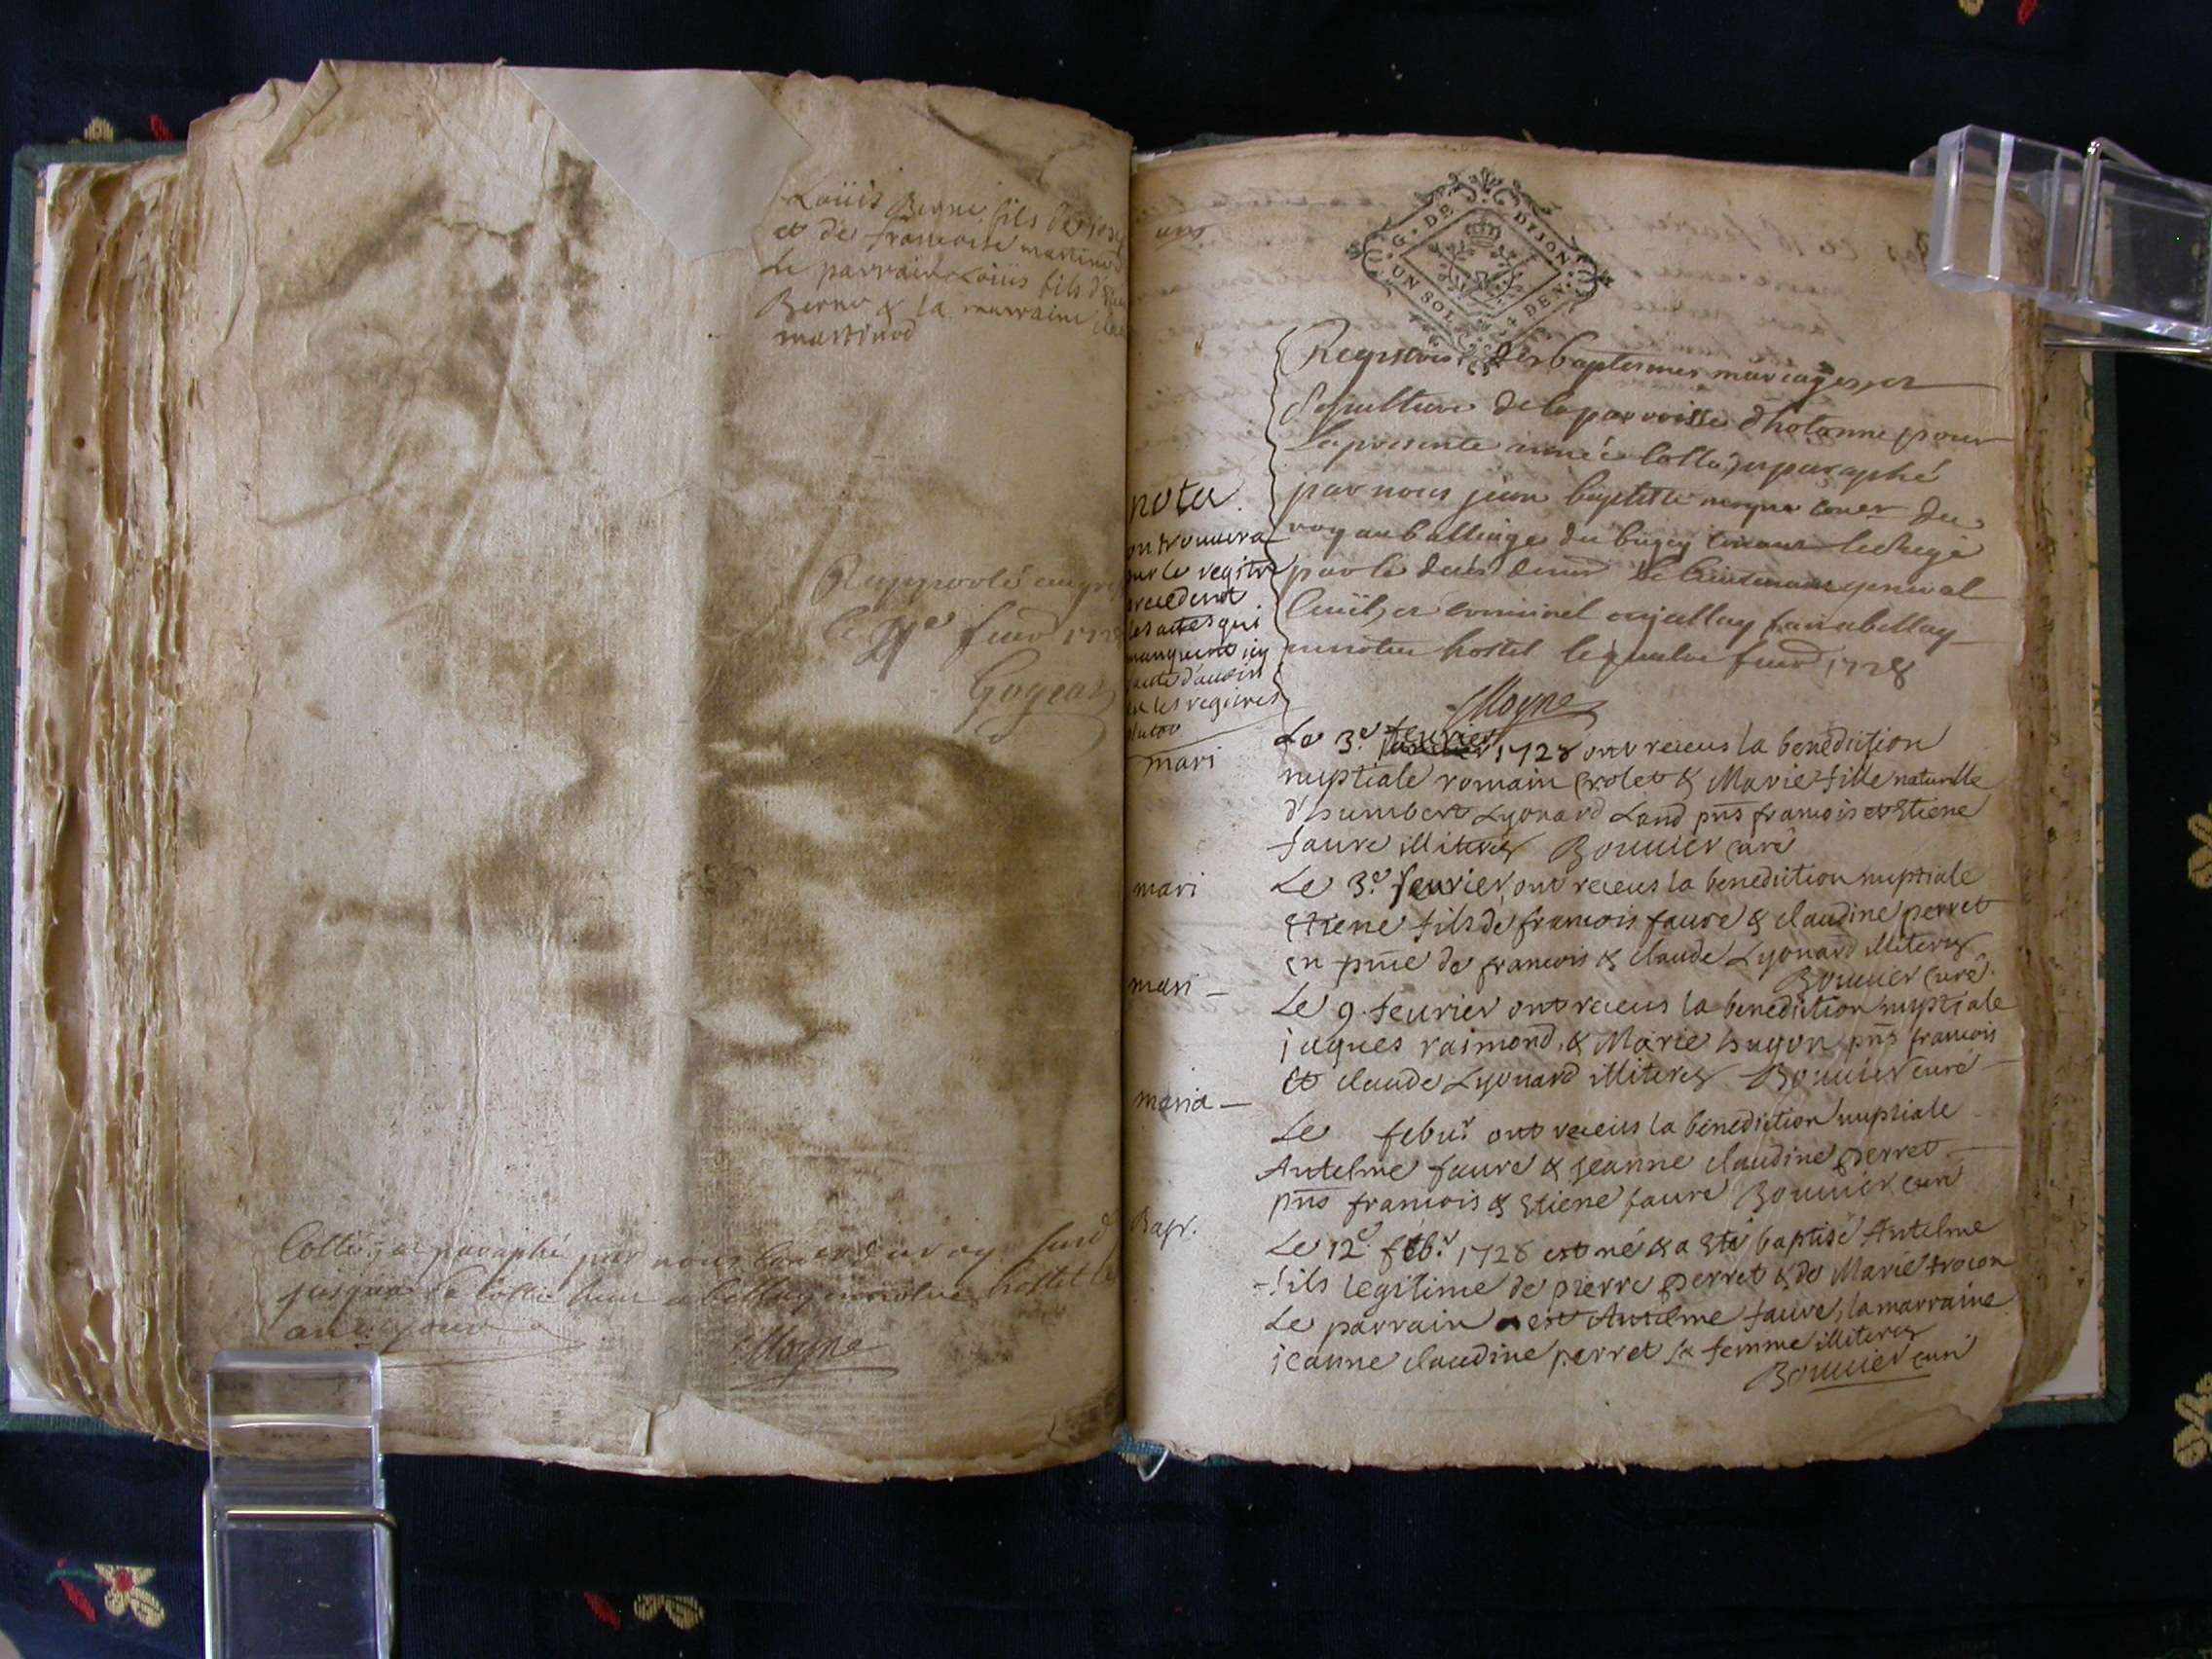 Loüis Berne fils de
et de francoise martinod
Le parrain Loüis fils d'
Berne & la marraine
martinod
Rapporté au
le feur 1728
Gogeat
Cotté, et paraphé par nous
jusqua hostel
Moyne
G. DE DIJON.
UN SOL 4 DEN.
Registres des baptesmes mariages, et
Sepulture de la parroisse dhotonne pour
La presente année Cotté, et paraphé
par nous jean baptiste moyne Coner du
roy au balliage du bugey
par le decés de le Lieutenant general
Ciuil, et criminel
en notre hostel le feur 1728
Moyne
nota
on trouuera
sur le regitre
precedent
les actes qui
manquent icy
faute d'auoir
eu les regitres
mari
Le 3.e feurier 1728 ont receus la benediction
nuptiale romain & Marie fille naturelle
d'humbert Lyonard pns francois et Etiene
faure illiterez Bouuier curé
mari
Le 3.e feurier ont receus la benediction nuptiale
Etiene fils de francois faure & claudine perret
en pnce de francois & claude Lyonard illiterez
Bouuier curé
mari
Le 9. feurier ont receus la benediction nuptiale
jaques raimond, & Marie hugon pns francois
et claude Lyonard illiterez Bouuier curé
maria
Le febur ont receus la benediction nuptiale
Antelme faure & jeanne claudine perret
pns francois & Etiene faure Bouuier curé
Bapt.
Le 12.e febr 1728 est né & a été baptisé Antelme
fils legitime de pierre perret & de Marie trocon
Le parrain est Antelme faure, la marraine
jeanne claudine perret sa femme illiterez
Bouuier curé